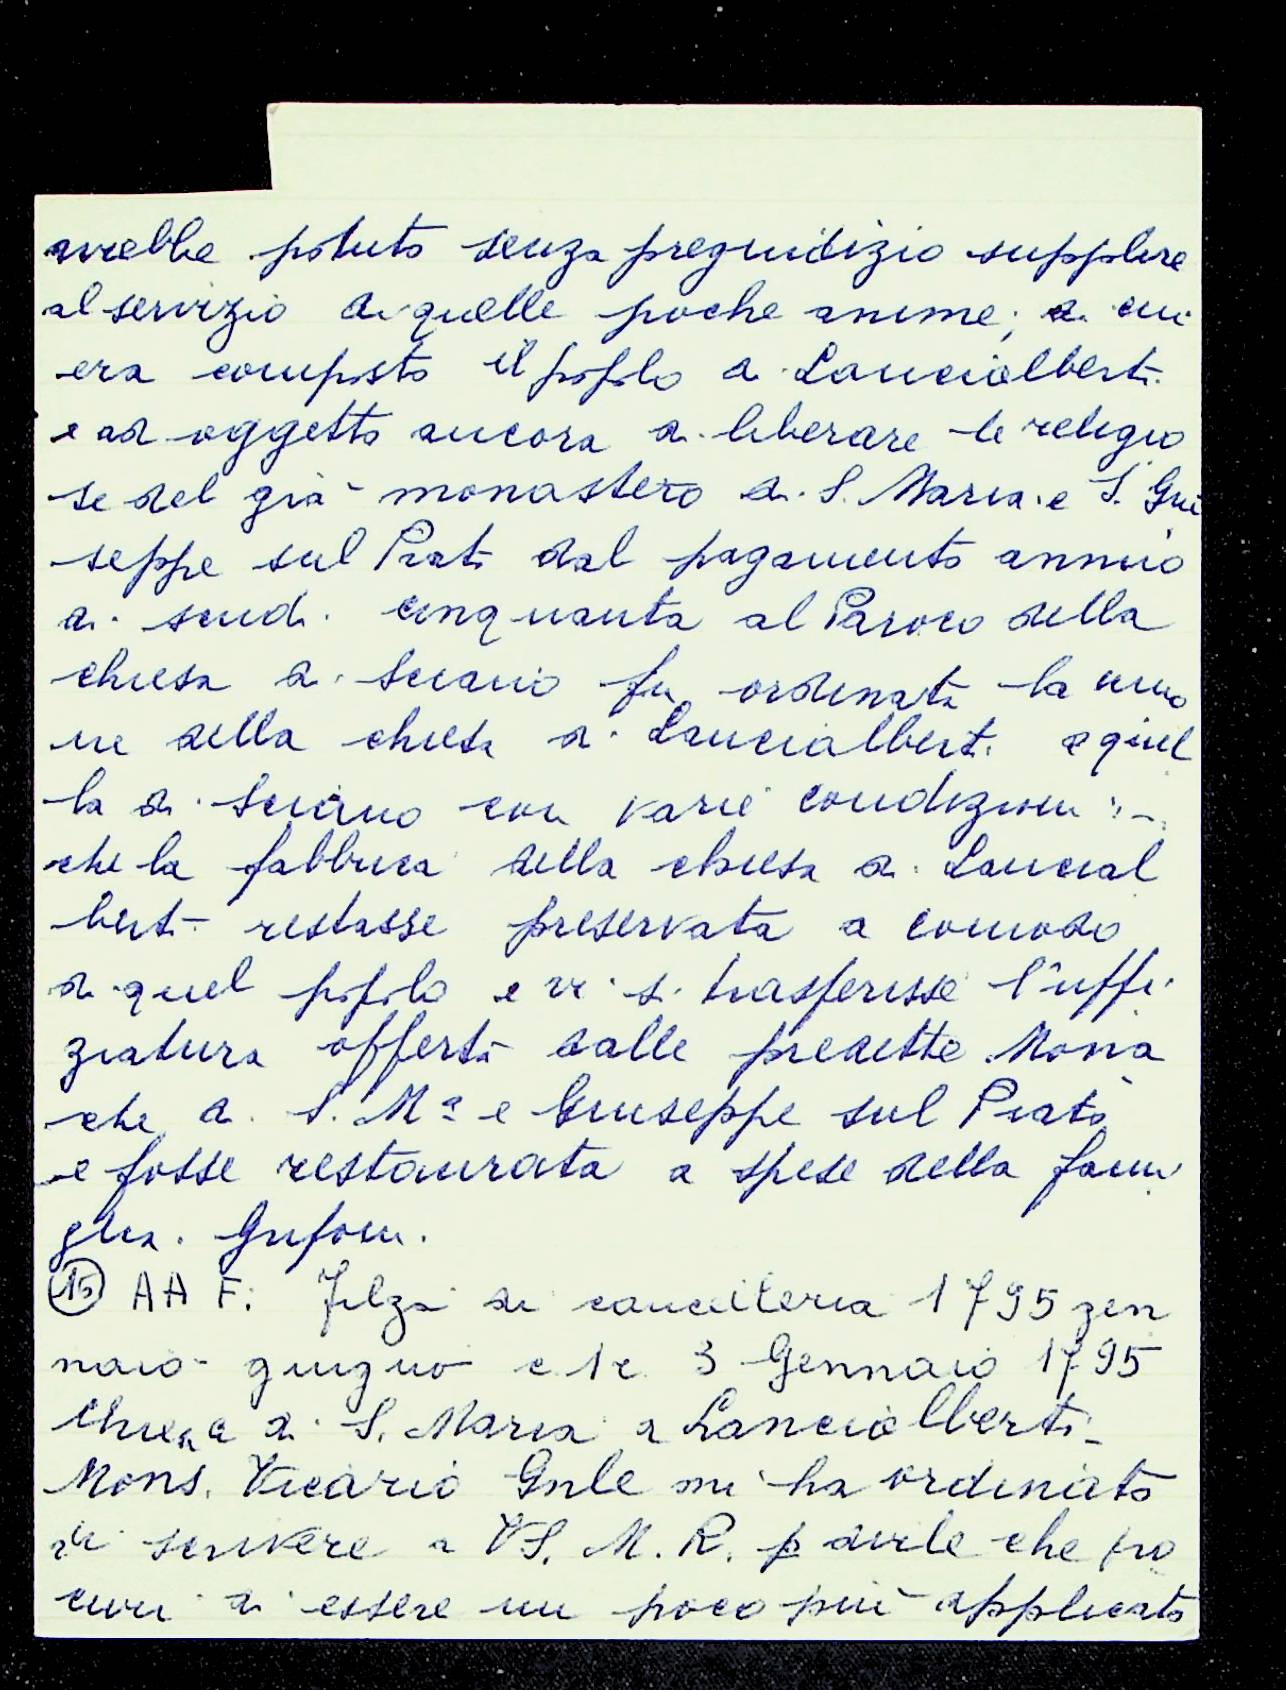 avrebbe potuto senza pregiudizio supplire
al servizio di quelle poche anime, di cui
era composto il popolo di Lancialberti
e ad oggetto ancora di liberare le religio
se del già monastero di S. Maria e S. Giu
seppe sul Prato dal pagamento annuo
di scudi cinquanta al Paroco della
chiesa di Sciano fu ordinata la unio
ne della chiesa di Lancialberti a quel
la di Sciano con varie condizioni:-
che la fabbrica della chiesa di Lancial
berti restasse preservata a comodo
di quel popolo e vi si trasferisse l'uffi
ziatura offerta dalle predette Mona
che di S. Mª e Giuseppe sul Prato
e fosse restaurata a spese della fami
glia Grifoni.
15 AAF: Filza di cancelleria 1795 gen
naio- giugno 3 Gennaio 1795
Chiesa di S. Maria a Lancialberti-
Mons. Vicario Gnle mi ha ordinato
di scrivere a VS. M. R. p dirle che pro
curi di essere un poco più applicato